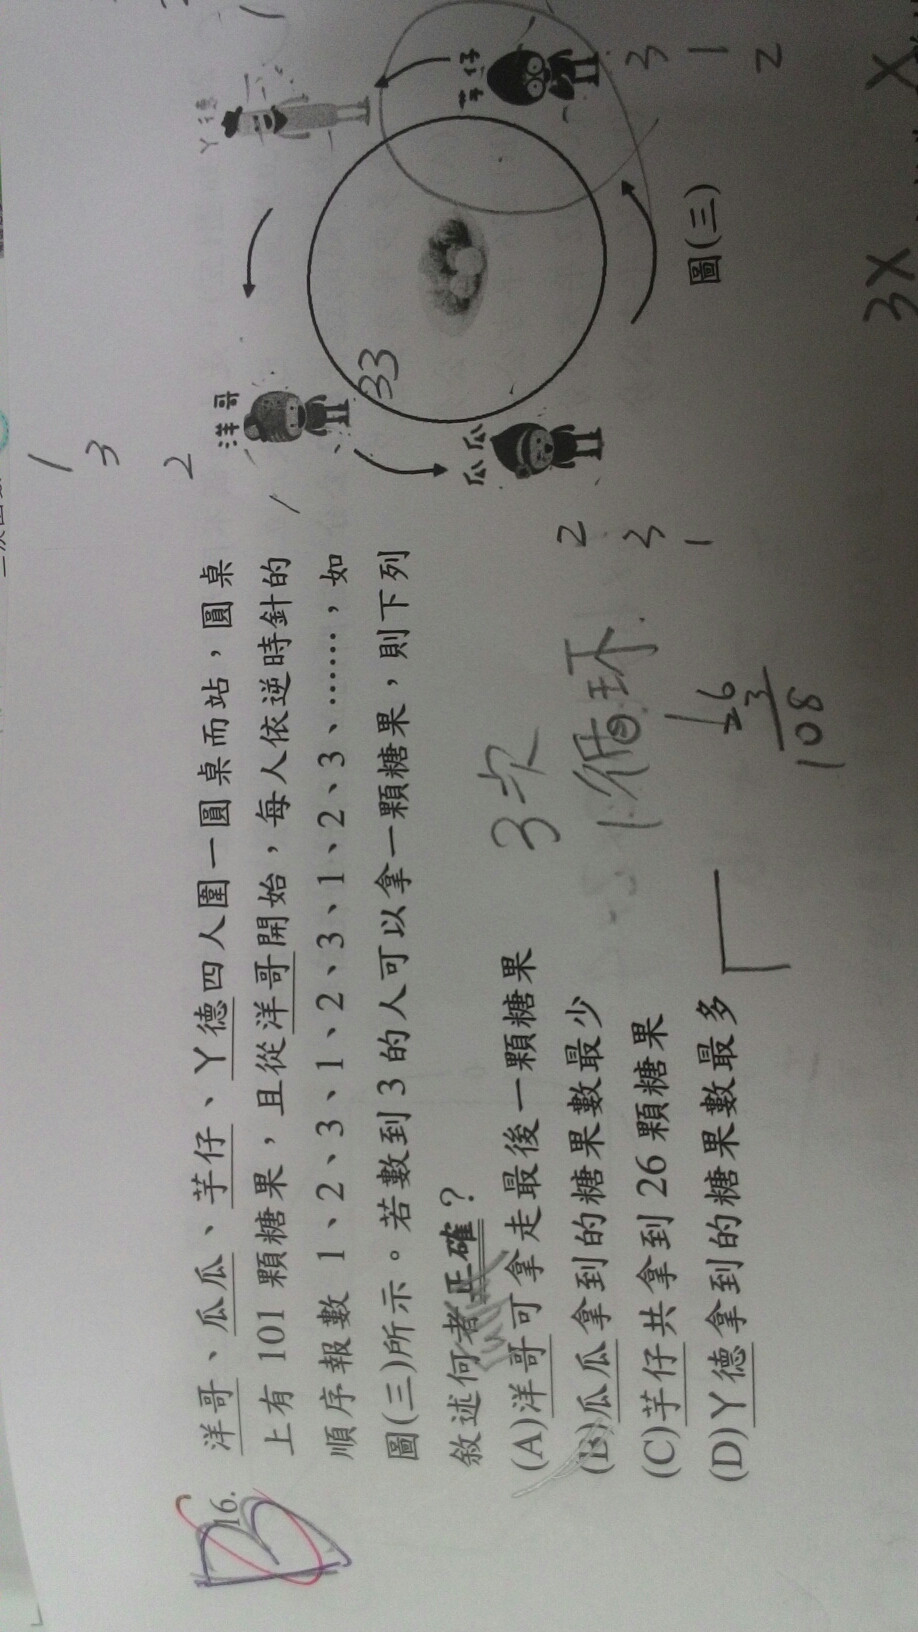 16. 洋哥、瓜瓜、芋仔、丫德四人圍一圓桌而站，圓桌
上有 101 顆糖果，且從洋哥開始，每人依逆時針的
順序報數 1、2、3、1、2、3、1、2、3、……，如
圖(三)所示。若數到 3 的人可以拿一顆糖果，則下列
敘述何者正確？
(A)洋哥可拿走最後一顆糖果
(B)瓜瓜拿到的糖果數最少
(C)芋仔共拿到 26 顆糖果
(D)丫德拿到的糖果數最多
B
3次
1循环
3
108
1
3
2
洋哥
33
瓜瓜
2
3
1
丫德
芋仔
3
1
2
圖(三)
3X
X